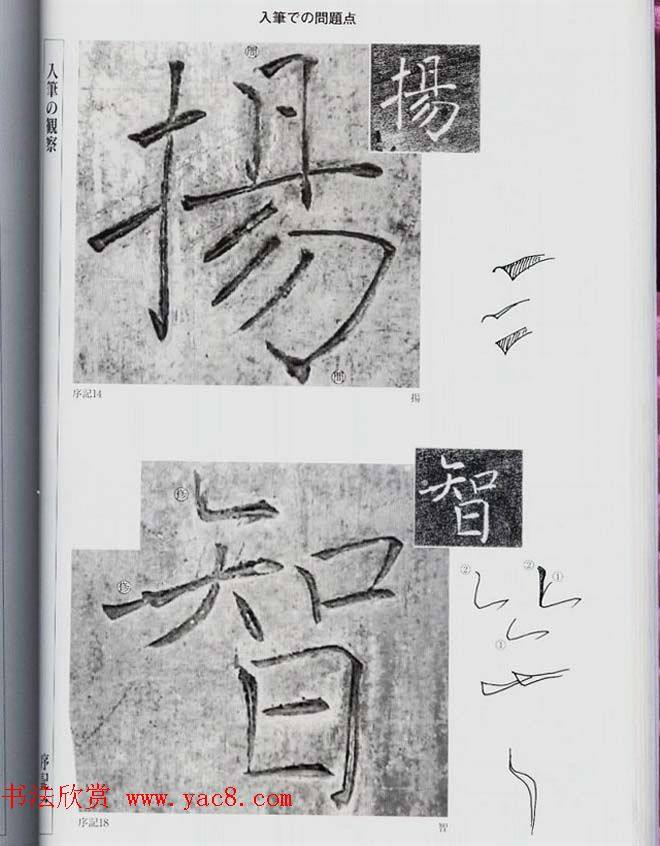 入筆での問題点
入筆の観察
揚
揚
序記14
揚
智
智
② ② ①
①
序記
书法欣赏 www.yac8.com
序記18
智